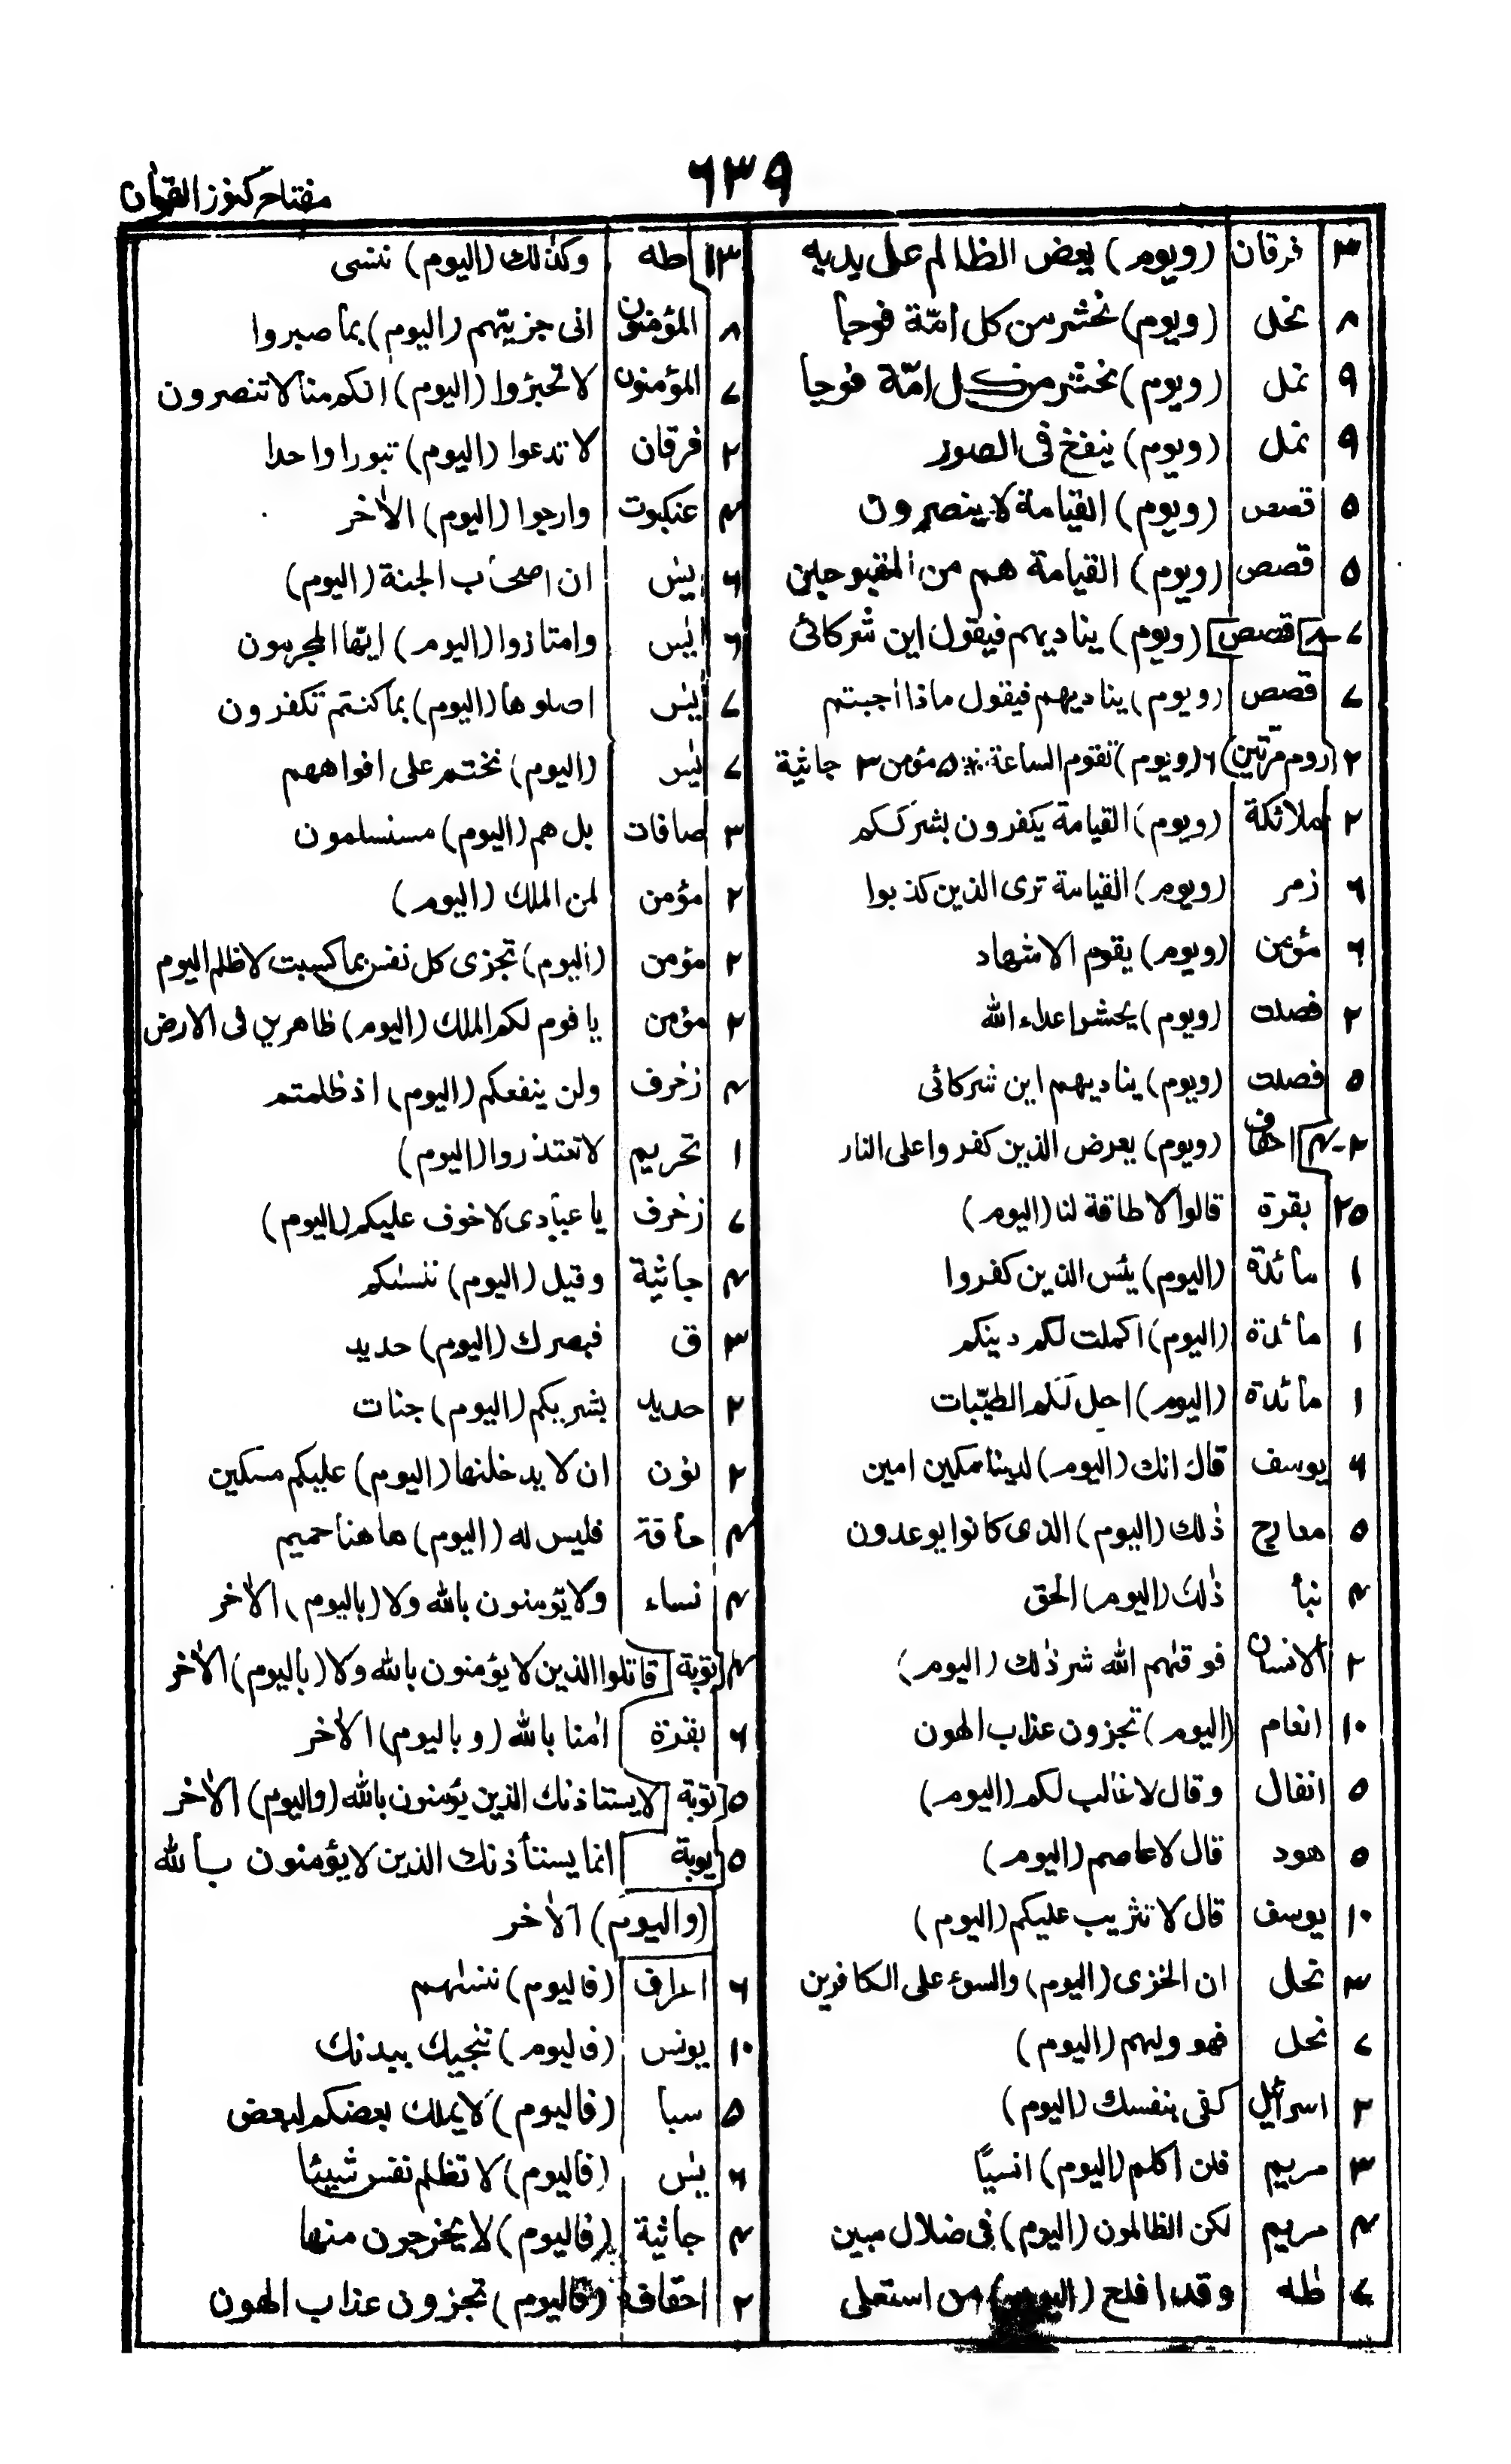 ٦٣٩
مفتاح كنوز القرآن
٣ فرقان (ويوم) يعض الظالم على يديه
٨ نحل (ويوم) نحشر من كل امّة فوجا
٩ نمل (ويوم) نحشر من كل امّة فوجا
٩ نمل (ويوم) ينفخ فى الصور
٥ قصص (ويوم) القيامة لا ينصرون
٥ قصص (ويوم) القيامة هم من المقبوحين
٧-٨ قصص (ويوم) يناديهم فيقول اين شركائى
٧ قصص (ويوم) يناديهم فيقول ماذا اجبتم
٢ (روم مرّتين) ٦ (ويوم) تقوم الساعة ٥ مؤمن ٣ جاثية
٢ ملائكة (ويوم) القيامة يكفرون بشرككم
٦ زمر (ويوم) القيامة ترى الذين كذبوا
٦ مؤمن (ويوم) يقوم الاشهاد
٢ فصلت (ويوم) يحشر اعداء الله
٥ فصلت (ويوم) يناديهم اين شركائى
٢-٤ احقاف (ويوم) يعرض الذين كفروا على النار
٢٥ بقرة قالوا لا طاقة لنا (اليوم)
١ مائدة (اليوم) يئس الذين كفروا
١ مائدة (اليوم) اكملت لكم دينكم
١ مائدة (اليوم) احل لكم الطيّبات
٦ يوسف قال انك (اليوم) لدينا مكين امين
٥ معارج ذٰلك (اليوم) الذى كانوا يوعدون
٤ نبأ ذٰلك (اليوم) الحق
٢ الانسان فوقٰهم الله شر ذٰلك (اليوم)
١٠ انعام (اليوم) تجزون عذاب الهون
٥ انفال وقال لا غالب لكم (اليوم)
٥ هود قال لا عاصم (اليوم)
١٠ يوسف قال لا تثريب عليكم (اليوم)
٣ نحل ان الخزى (اليوم) والسوء على الكافرين
٧ نحل فهو وليهم (اليوم)
٢ اسرائيل كفى بنفسك (اليوم)
٣ مريم فلن اكلم (اليوم) انسيًا
٤ مريم لكن الظالمون (اليوم) فى ضلال مبين
٧ طٰه وقد افلح (اليوم) من استعلى
١٣ طه وكذٰلك (اليوم) تنسى
٨ المؤمنون انى جزيتهم (اليوم) بما صبروا
٧ المؤمنون لا تجئروا (اليوم) انكم منا لا تنصرون
٢ فرقان لا تدعوا (اليوم) ثبورا واحدا
٤ عنكبوت وارجوا (اليوم) الاٰخر
٦ يٰس ان اصحاب الجنة (اليوم)
٦ يٰس وامتازوا (اليوم) ايّها المجرمون
٧ يٰس اصلوها (اليوم) بما كنتم تكفرون
٧ يٰس (اليوم) نختم على افواههم
٣ صافات بل هم (اليوم) مستسلمون
٢ مؤمن لمن الملك (اليوم)
٢ مؤمن (اليوم) تجزى كل نفس بما كسبت لا ظلم اليوم
٢ مؤمن يا قوم لكم الملك (اليوم) ظاهرين فى الارض
٤ زخرف ولن ينفعكم (اليوم) اذ ظلمتم
١ تحريم لا تعتذروا (اليوم)
٧ زخرف يا عبادى لا خوف عليكم (اليوم)
٤ جاثية وقيل (اليوم) ننسٰكم
٣ ق فبصرك (اليوم) حديد
٢ حديد بشريٰكم (اليوم) جنات
٢ نون ان لا يدخلنها (اليوم) عليكم مسكين
٤ حاقة فليس له (اليوم) هاهنا حميم
٤ نساء ولا يؤمنون بالله ولا (باليوم) الاٰخر
٤ توبة قاتلوا الذين لا يؤمنون بالله ولا (باليوم) الاٰخر
٦ بقرة اٰمنا بالله (وباليوم) الاٰخر
٥ توبة لا يستاذنك الذين يؤمنون بالله (واليوم) الاٰخر
٥ توبة انما يستأذنك الذين لا يؤمنون بالله
(واليوم) الاٰخر
٦ اعراف (فاليوم) ننسٰهم
١٠ يونس (فاليوم) ننجيك ببدنك
٥ سبا (فاليوم) لا يملك بعضكم لبعض
٦ يٰس (فاليوم) لا تظلم نفس شيئا
٤ جاثية (فاليوم) لا يخرجون منها
٢ احقاف (فاليوم) تجزون عذاب الهون